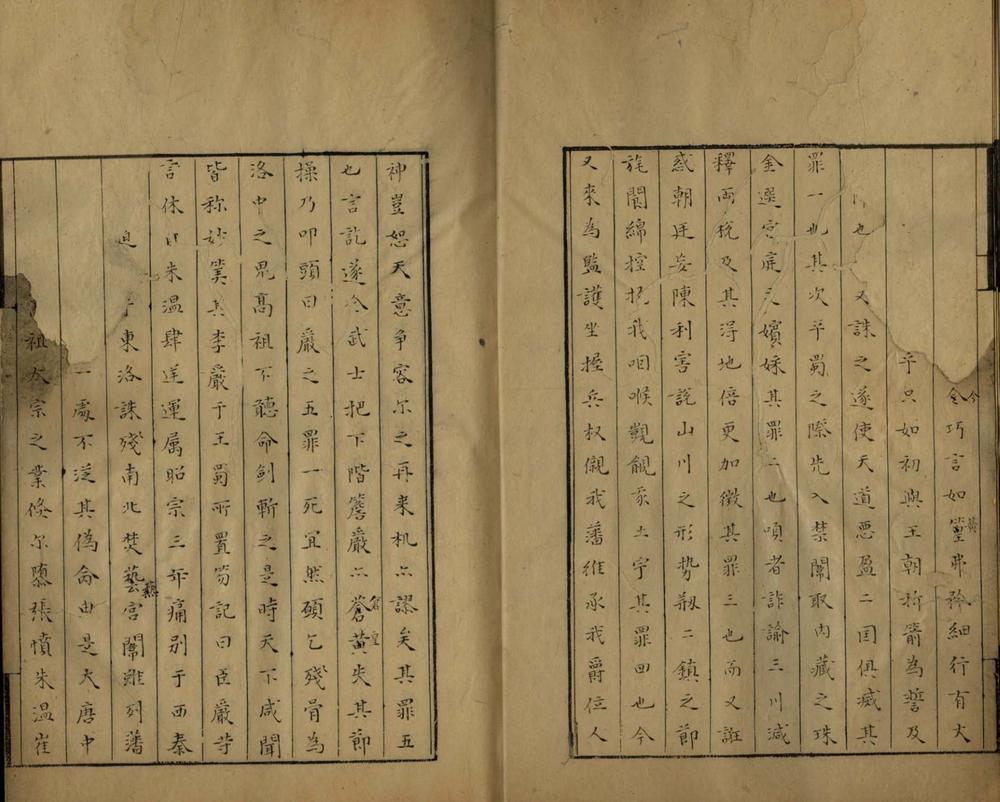 令巧言如簧弗矜細行有大
乎只如初與王朝折箭為誓及
也又誅之遂使天道惡盈二国俱滅其
罪一也其次平蜀之際先入禁闈取内藏之珠
金選宮庭之嬪婇其罪二也頃者詐諭三川減
釋兩稅及其得地倍更加徵其罪三也而又誑
惑朝廷妄陳利害說山川之形勢剏二鎮之節
旄閬綿控扼我咽喉覬覦我土宇其罪四也今
又來為監護坐握兵权儭我藩維承我爵位人
神豈恕天意争容尔之再来机亦謬矣其罪五
也言訖遂令武士把下階簷嚴亦蒼黄失其節
操乃叩頭曰嚴之五罪一死冝然碩乞殘骨為
洛中之鬼高祖不聽命剑斬之是時天下咸聞
皆称妙筭其李嚴于王蜀所置笏記曰臣嚴等
言休自朱温肆逆運属昭宗三𨚫痛别于西秦
東洛誅殘南北焚藝宮闈雖列藩
一處不泛其偽命由是大唐中
祖太宗之業倏尔隳張憤朱温崔